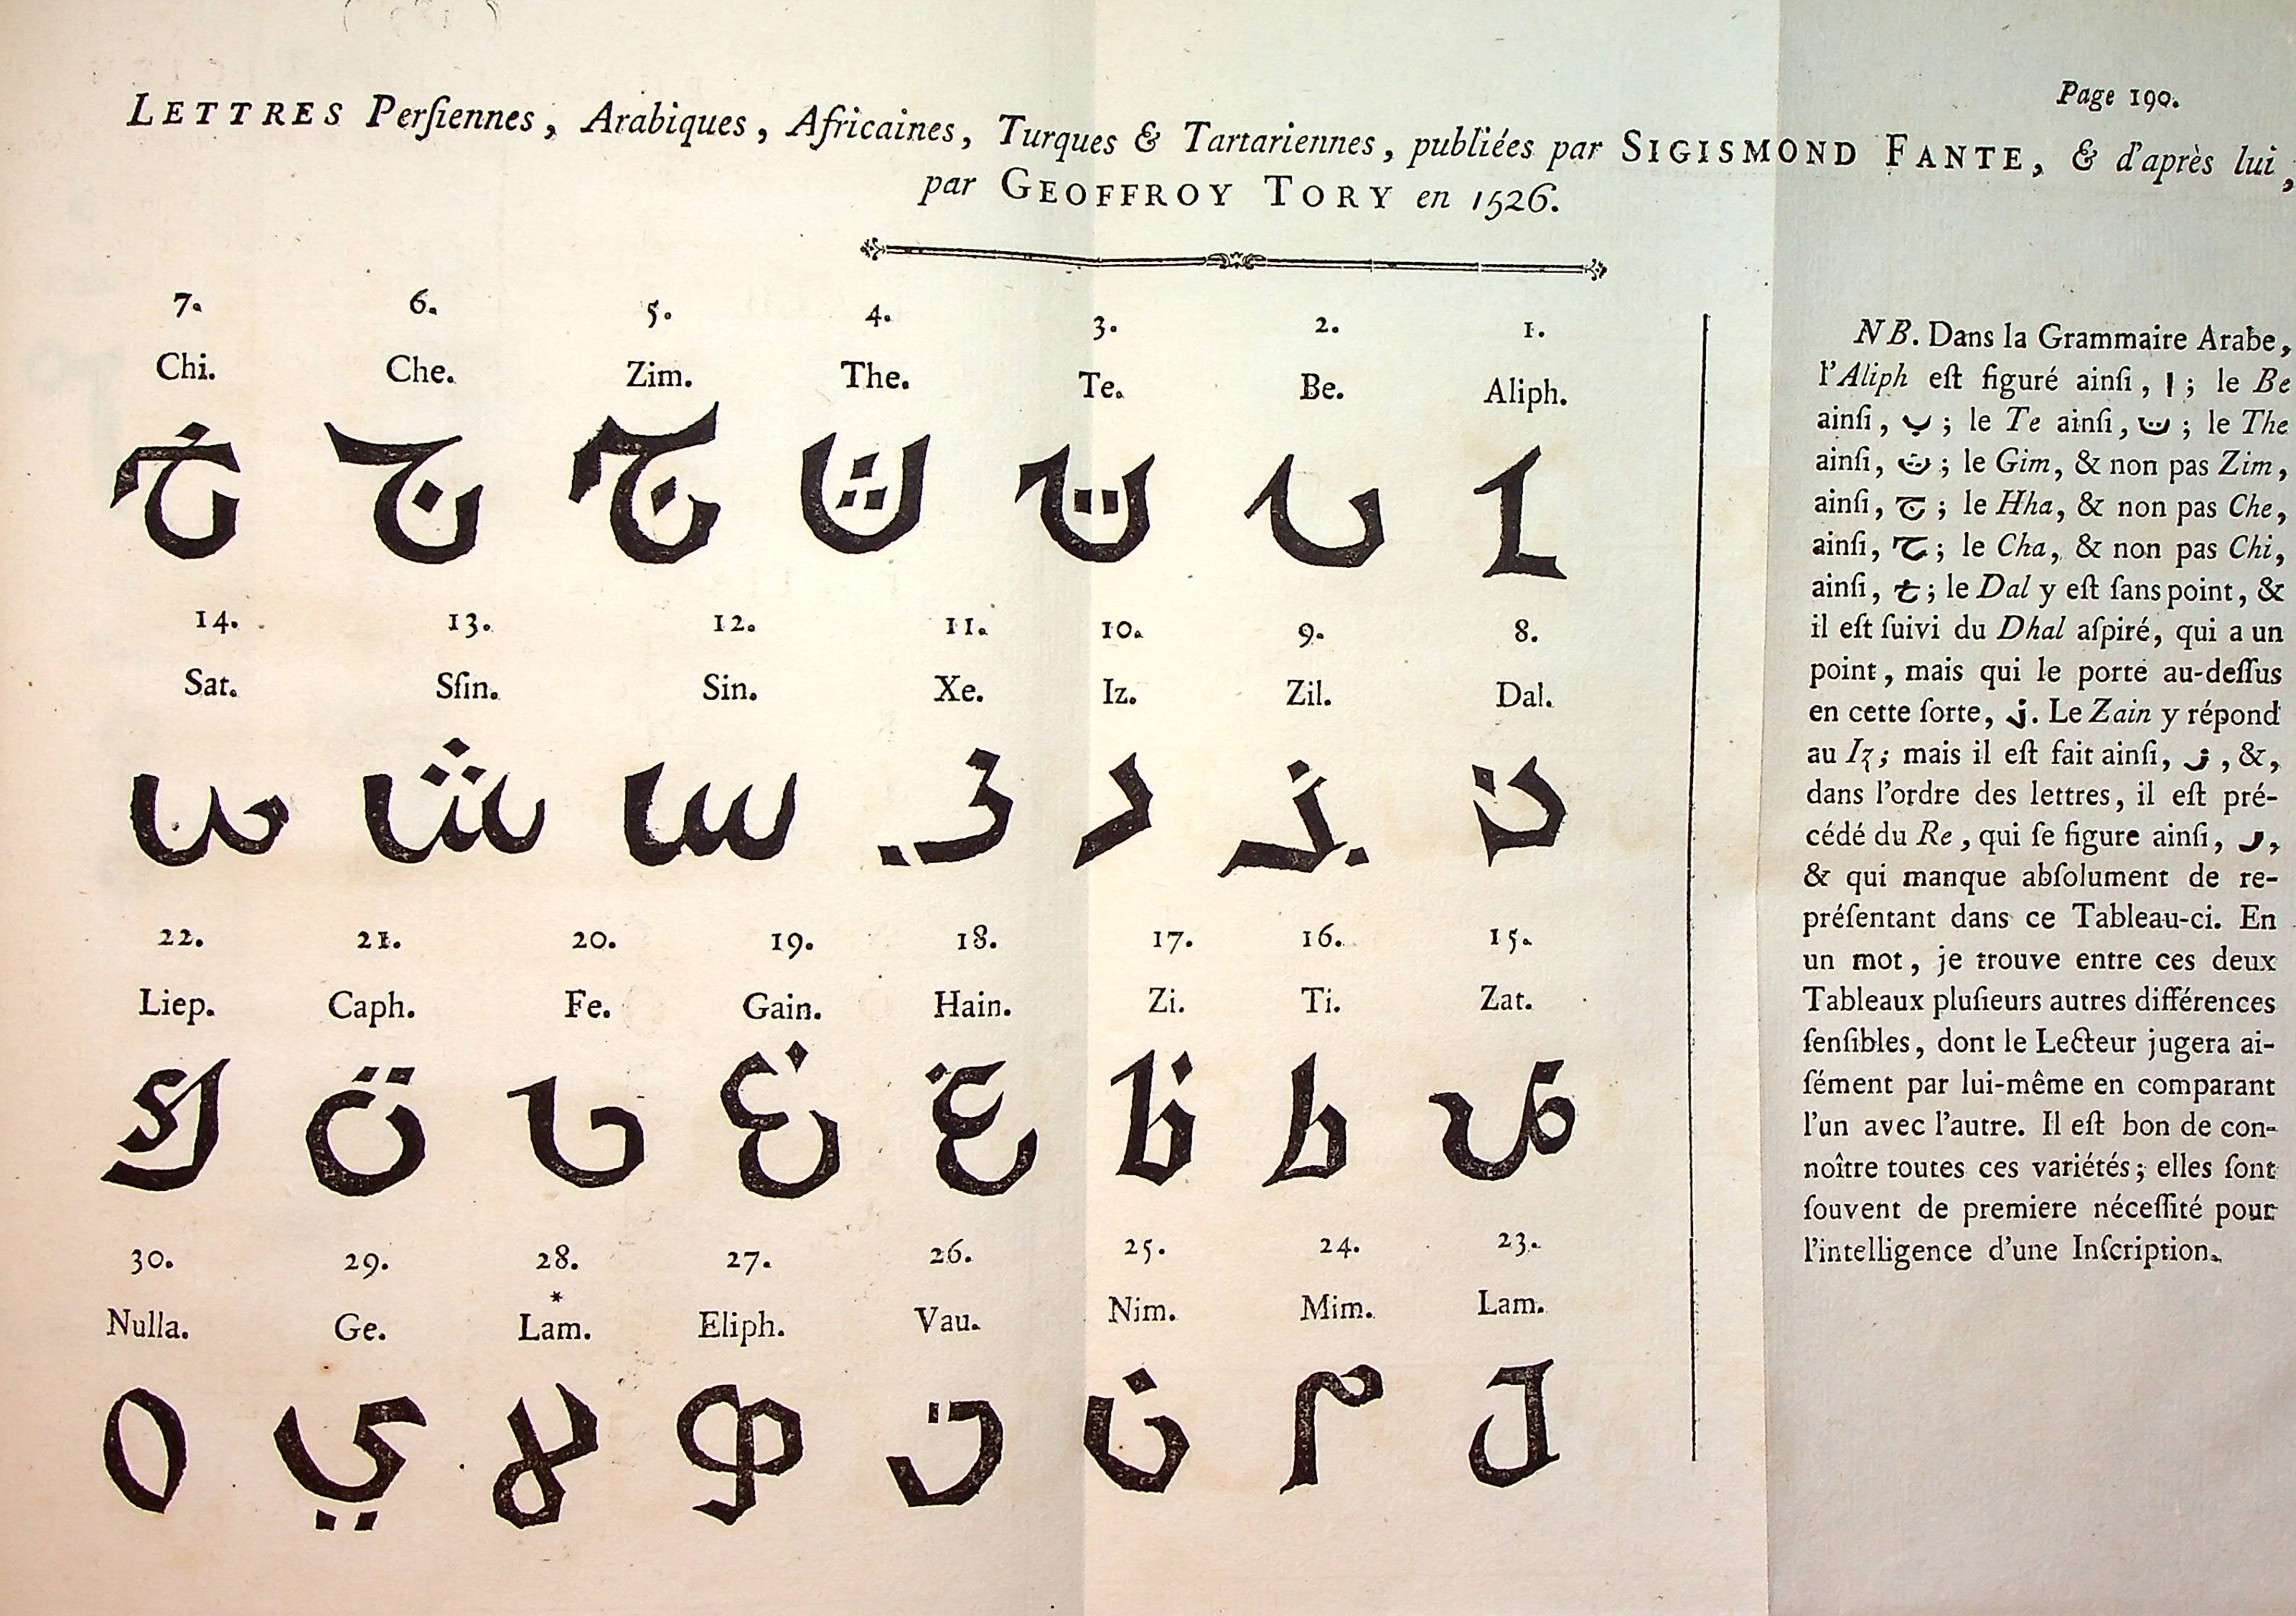 Page 190.
LETTRES Perſiennes, Arabiques, Africaines, Turques & Tartariennes, publiées par SIGISMOND FANTE, & d'après lui,
par GEOFFROY TORY en 1526.
7. 6. 5. 4. 3. 2. 1.
Chi. Che. Zim. The. Te. Be. Aliph.
14. 13. 12. 11. 10. 9. 8.
Sat. Sſin. Sin. Xe. Iz. Zil. Dal.
22. 21. 20. 19. 18. 17. 16. 15.
Liep. Caph. Fe. Gain. Hain. Zi. Ti. Zat.
30. 29. 28. 27. 26. 25. 24. 23.
*
Nulla. Ge. Lam. Eliph. Vau. Nim. Mim. Lam.
NB. Dans la Grammaire Arabe,
l'Aliph eſt figuré ainſi, ا ; le Be
ainſi, ب ; le Te ainſi, ت ; le The
ainſi, ث ; le Gim, & non pas Zim,
ainſi, ج ; le Hha, & non pas Che,
ainſi, ح ; le Cha, & non pas Chi,
ainſi, خ ; le Dal y eſt ſans point, &
il eſt ſuivi du Dhal aſpiré, qui a un
point, mais qui le porte au-deſſus
en cette ſorte, ذ. Le Zain y répond
au Iz ; mais il eſt fait ainſi, ز , &,
dans l'ordre des lettres, il eſt pré-
cédé du Re, qui ſe figure ainſi, ر,
& qui manque abſolument de re-
préſentant dans ce Tableau-ci. En
un mot, je trouve entre ces deux
Tableaux pluſieurs autres différences
ſenſibles, dont le Lecteur jugera ai-
ſément par lui-même en comparant
l'un avec l'autre. Il eſt bon de con-
noître toutes ces variétés ; elles ſont
ſouvent de premiere néceſſité pour
l'intelligence d'une Inſcription.